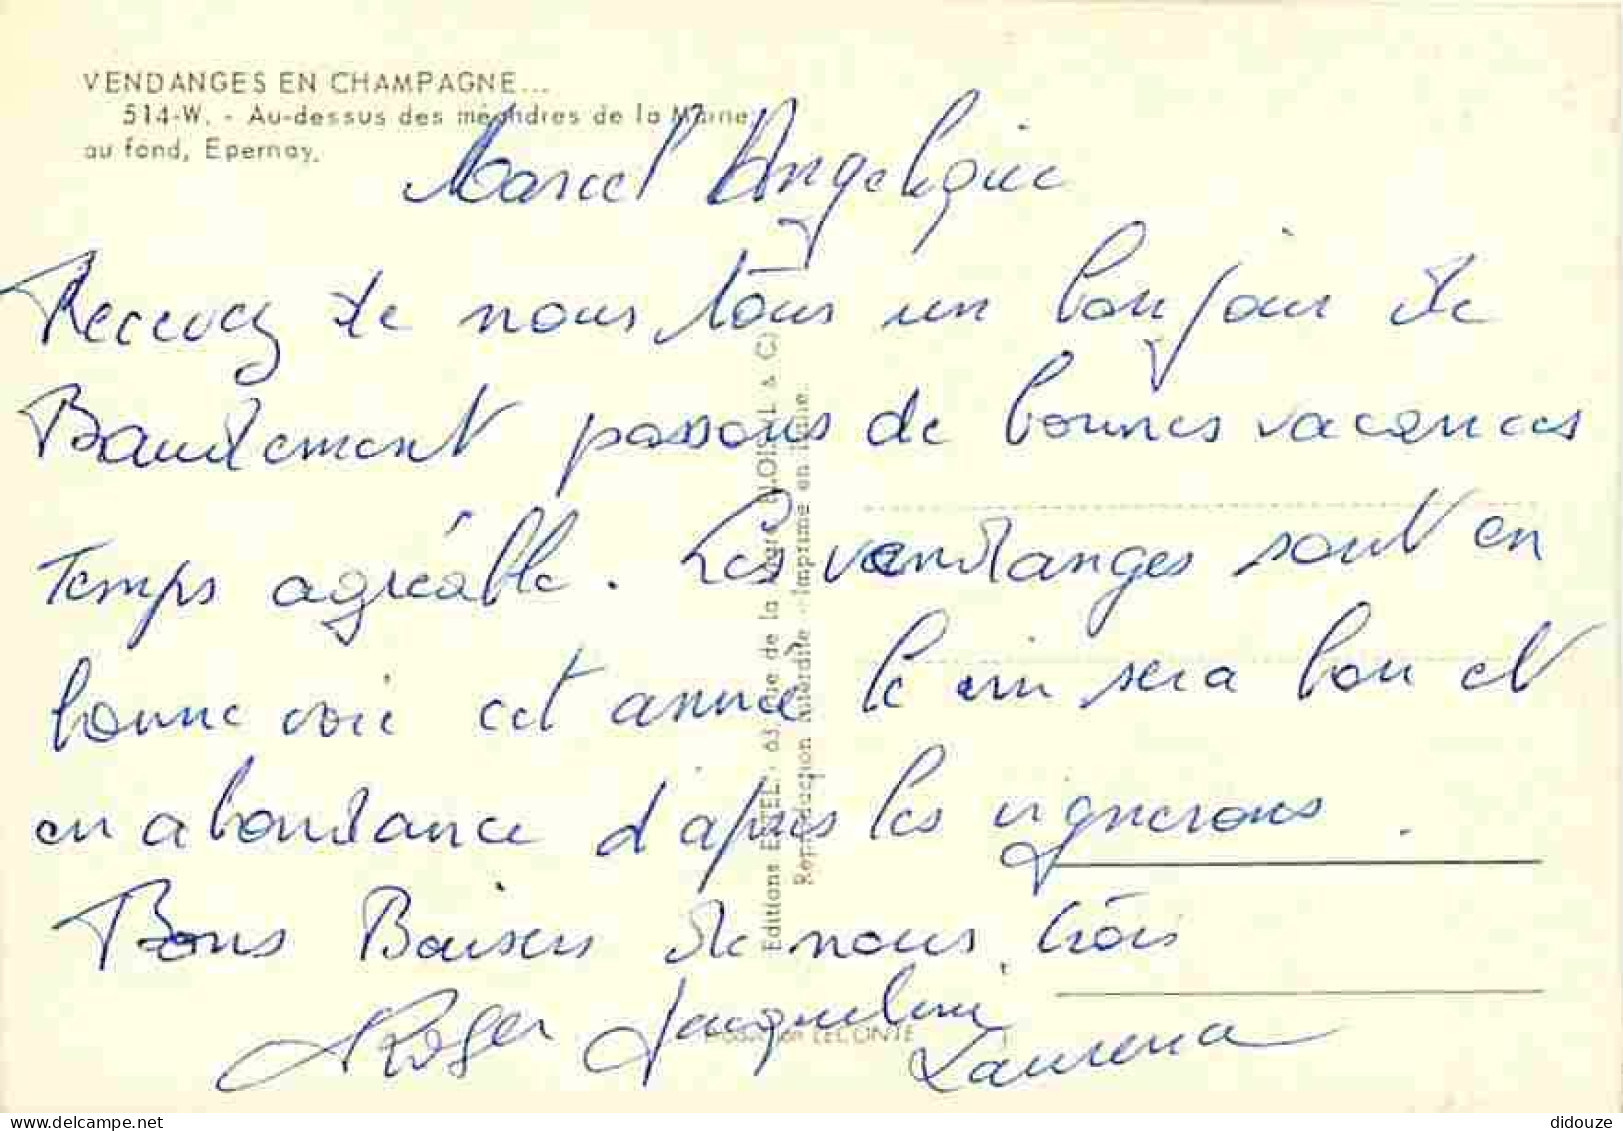 VENDANGES EN CHAMPAGNE...
514-W. - Au-dessus des méandres de la Marne
au fond, Epernay.
Marcel Angelique
Recevez de nous tous un bonjour de
Baudement passons de bonnes vacances
Temps agréable. Les vendanges sont en
bonne voie cet année le vin sera bon et
en abondance d'après les vignerons.
Bons Baisers de nous trois
Roger Jacqueline
Laurena
Editions ESTEL: 63, rue de la (BLOIS, L & C)
Reproduction Interdite - Imprimé en
Production LECONTE
delcampe.net
didouze